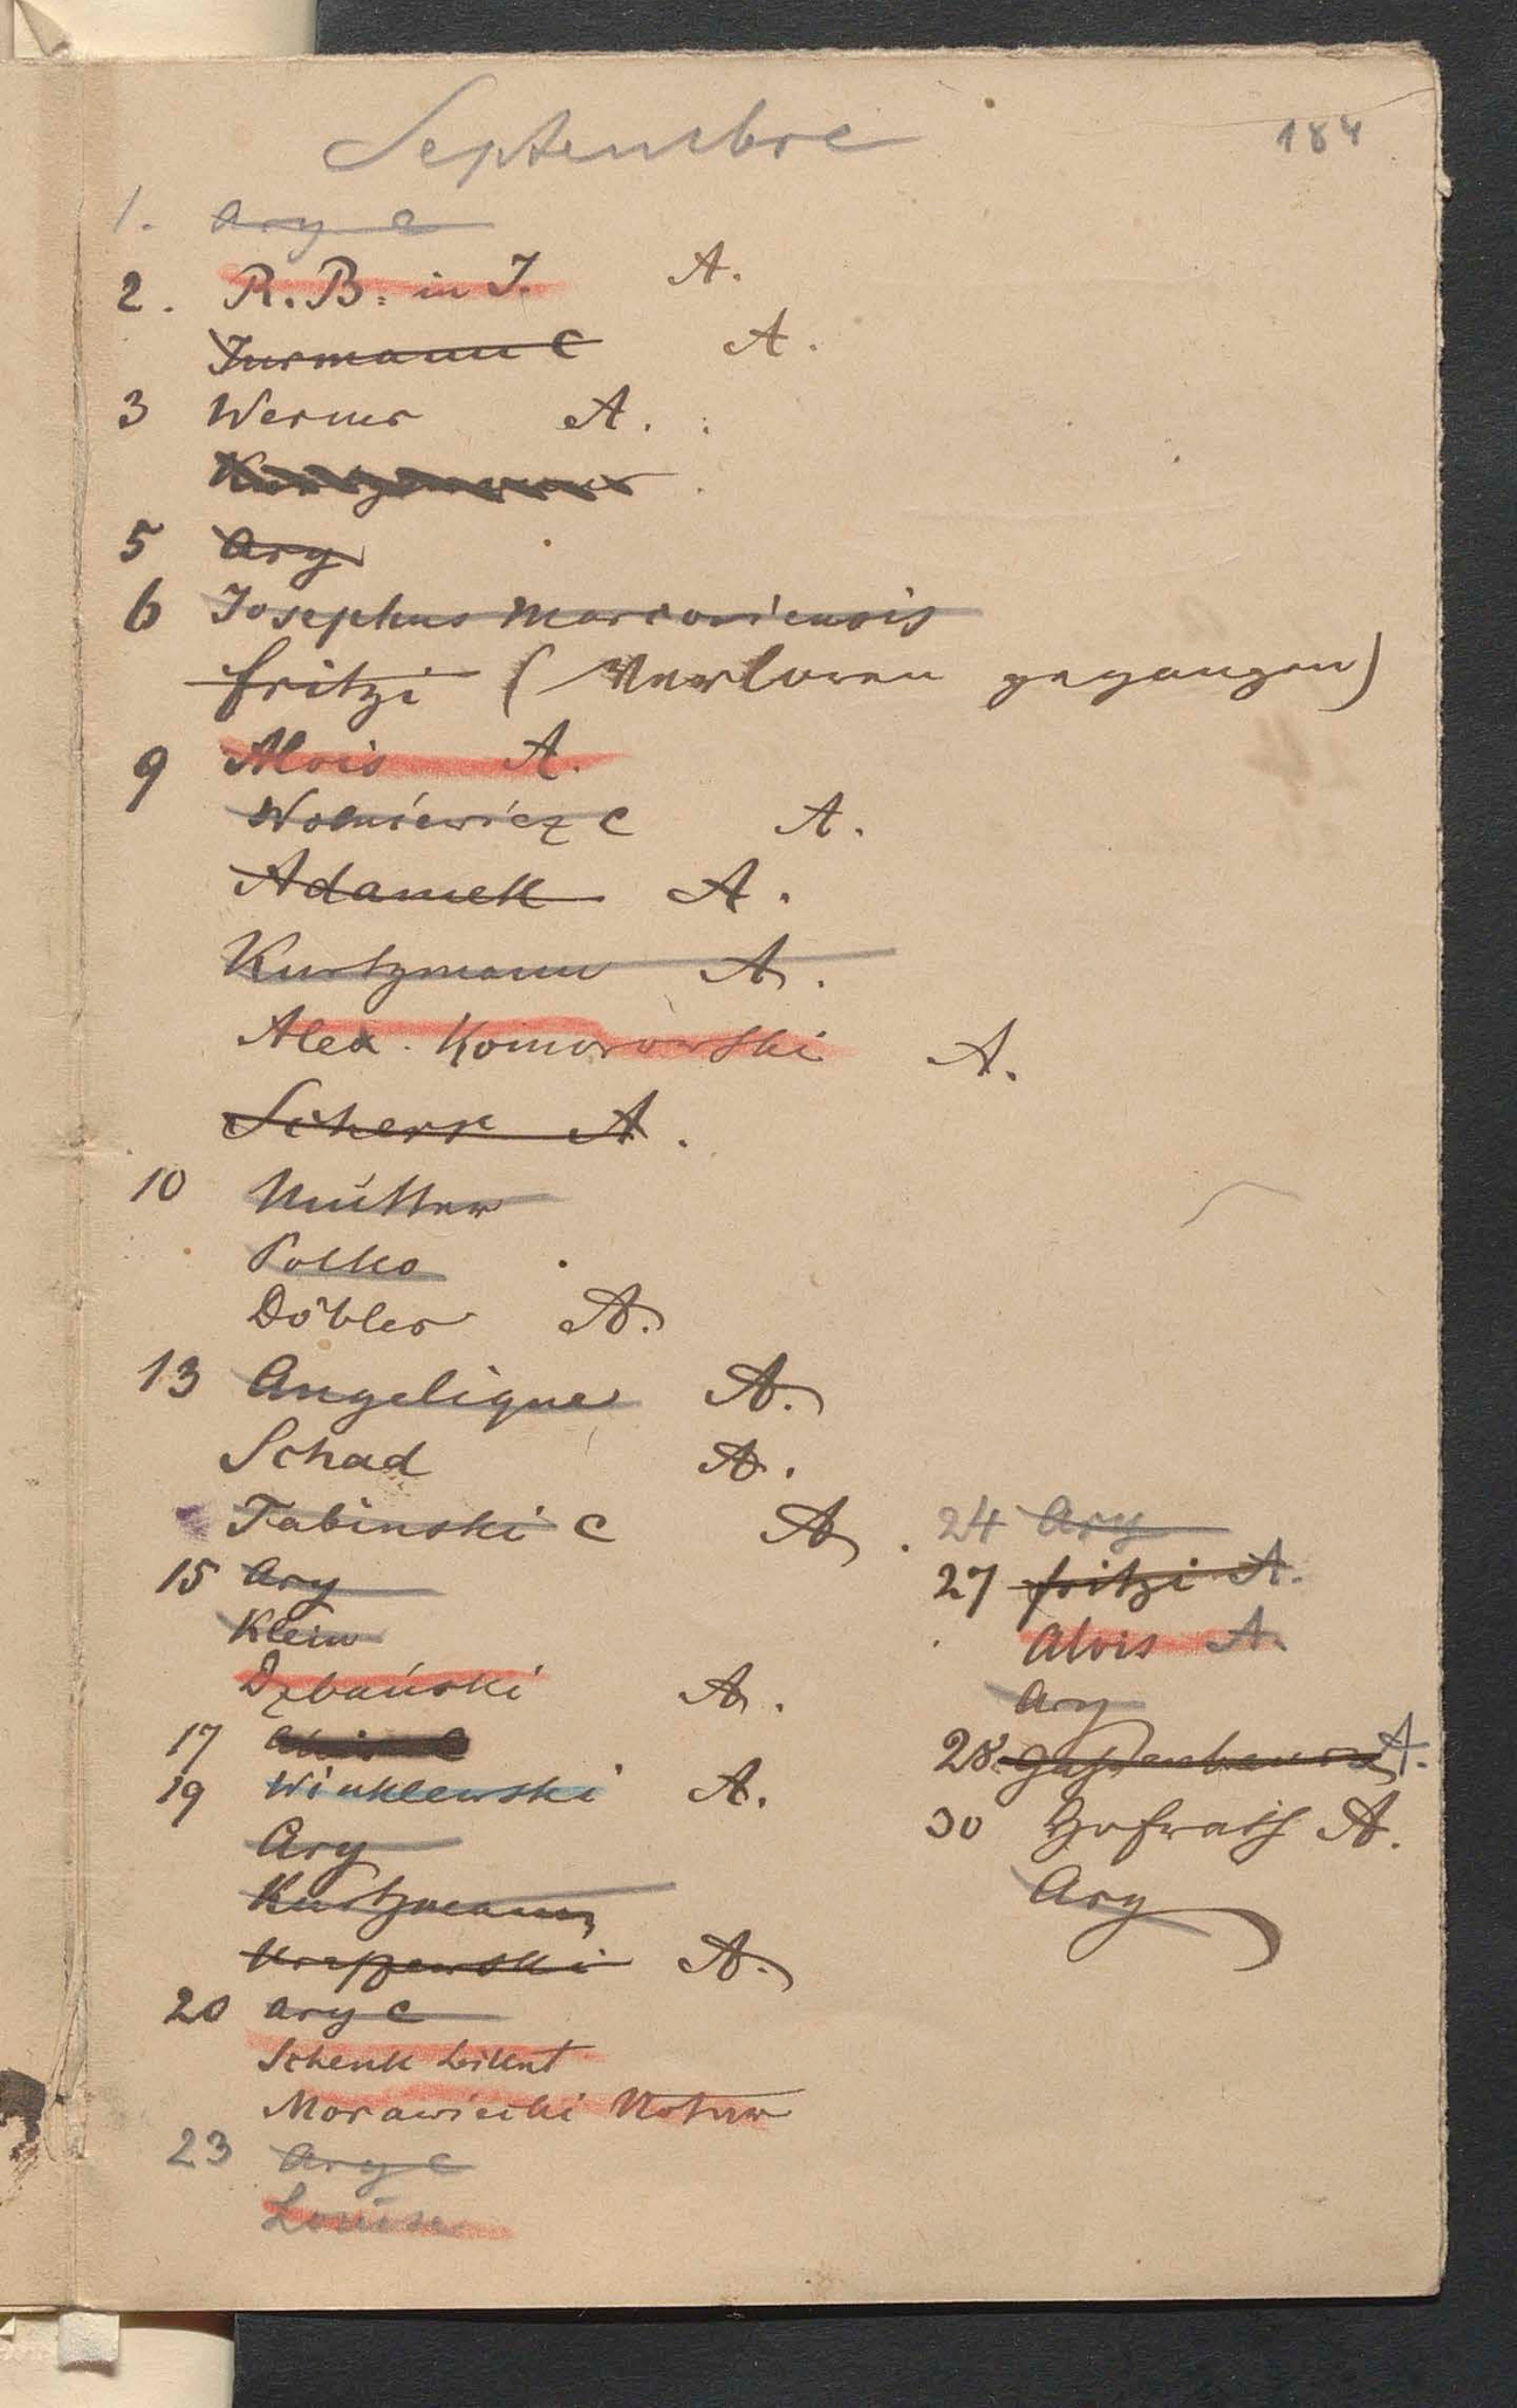 Septembre
184
1. Ary C
2. R. B. in J. A.
Jurmann C A.
3 Werner A.
Kurtzmann
5 Ary
6 Josephus Marcoviensis
Fritzi (Verloren gegangen)
9 Alois A.
Wolniewicz C A.
Adamek A.
Kurtzmann A.
Alex. Komorowski A.
Scherr A.
10 Mutter
Polko
Döbler A.
13 Angelique A.
Schad A.
Tabinski C A.
15 Ary
Klein
Dębański A.
17
19 Winklewski A.
Ary
Kurtzmann
A.
20 Ary C
Schenk
Morawiecki Notar
23 Ary C
Louise
24 Ary
27 Fritzi A.
Alois A.
Ary
28 A.
30 Hofrath A.
Ary